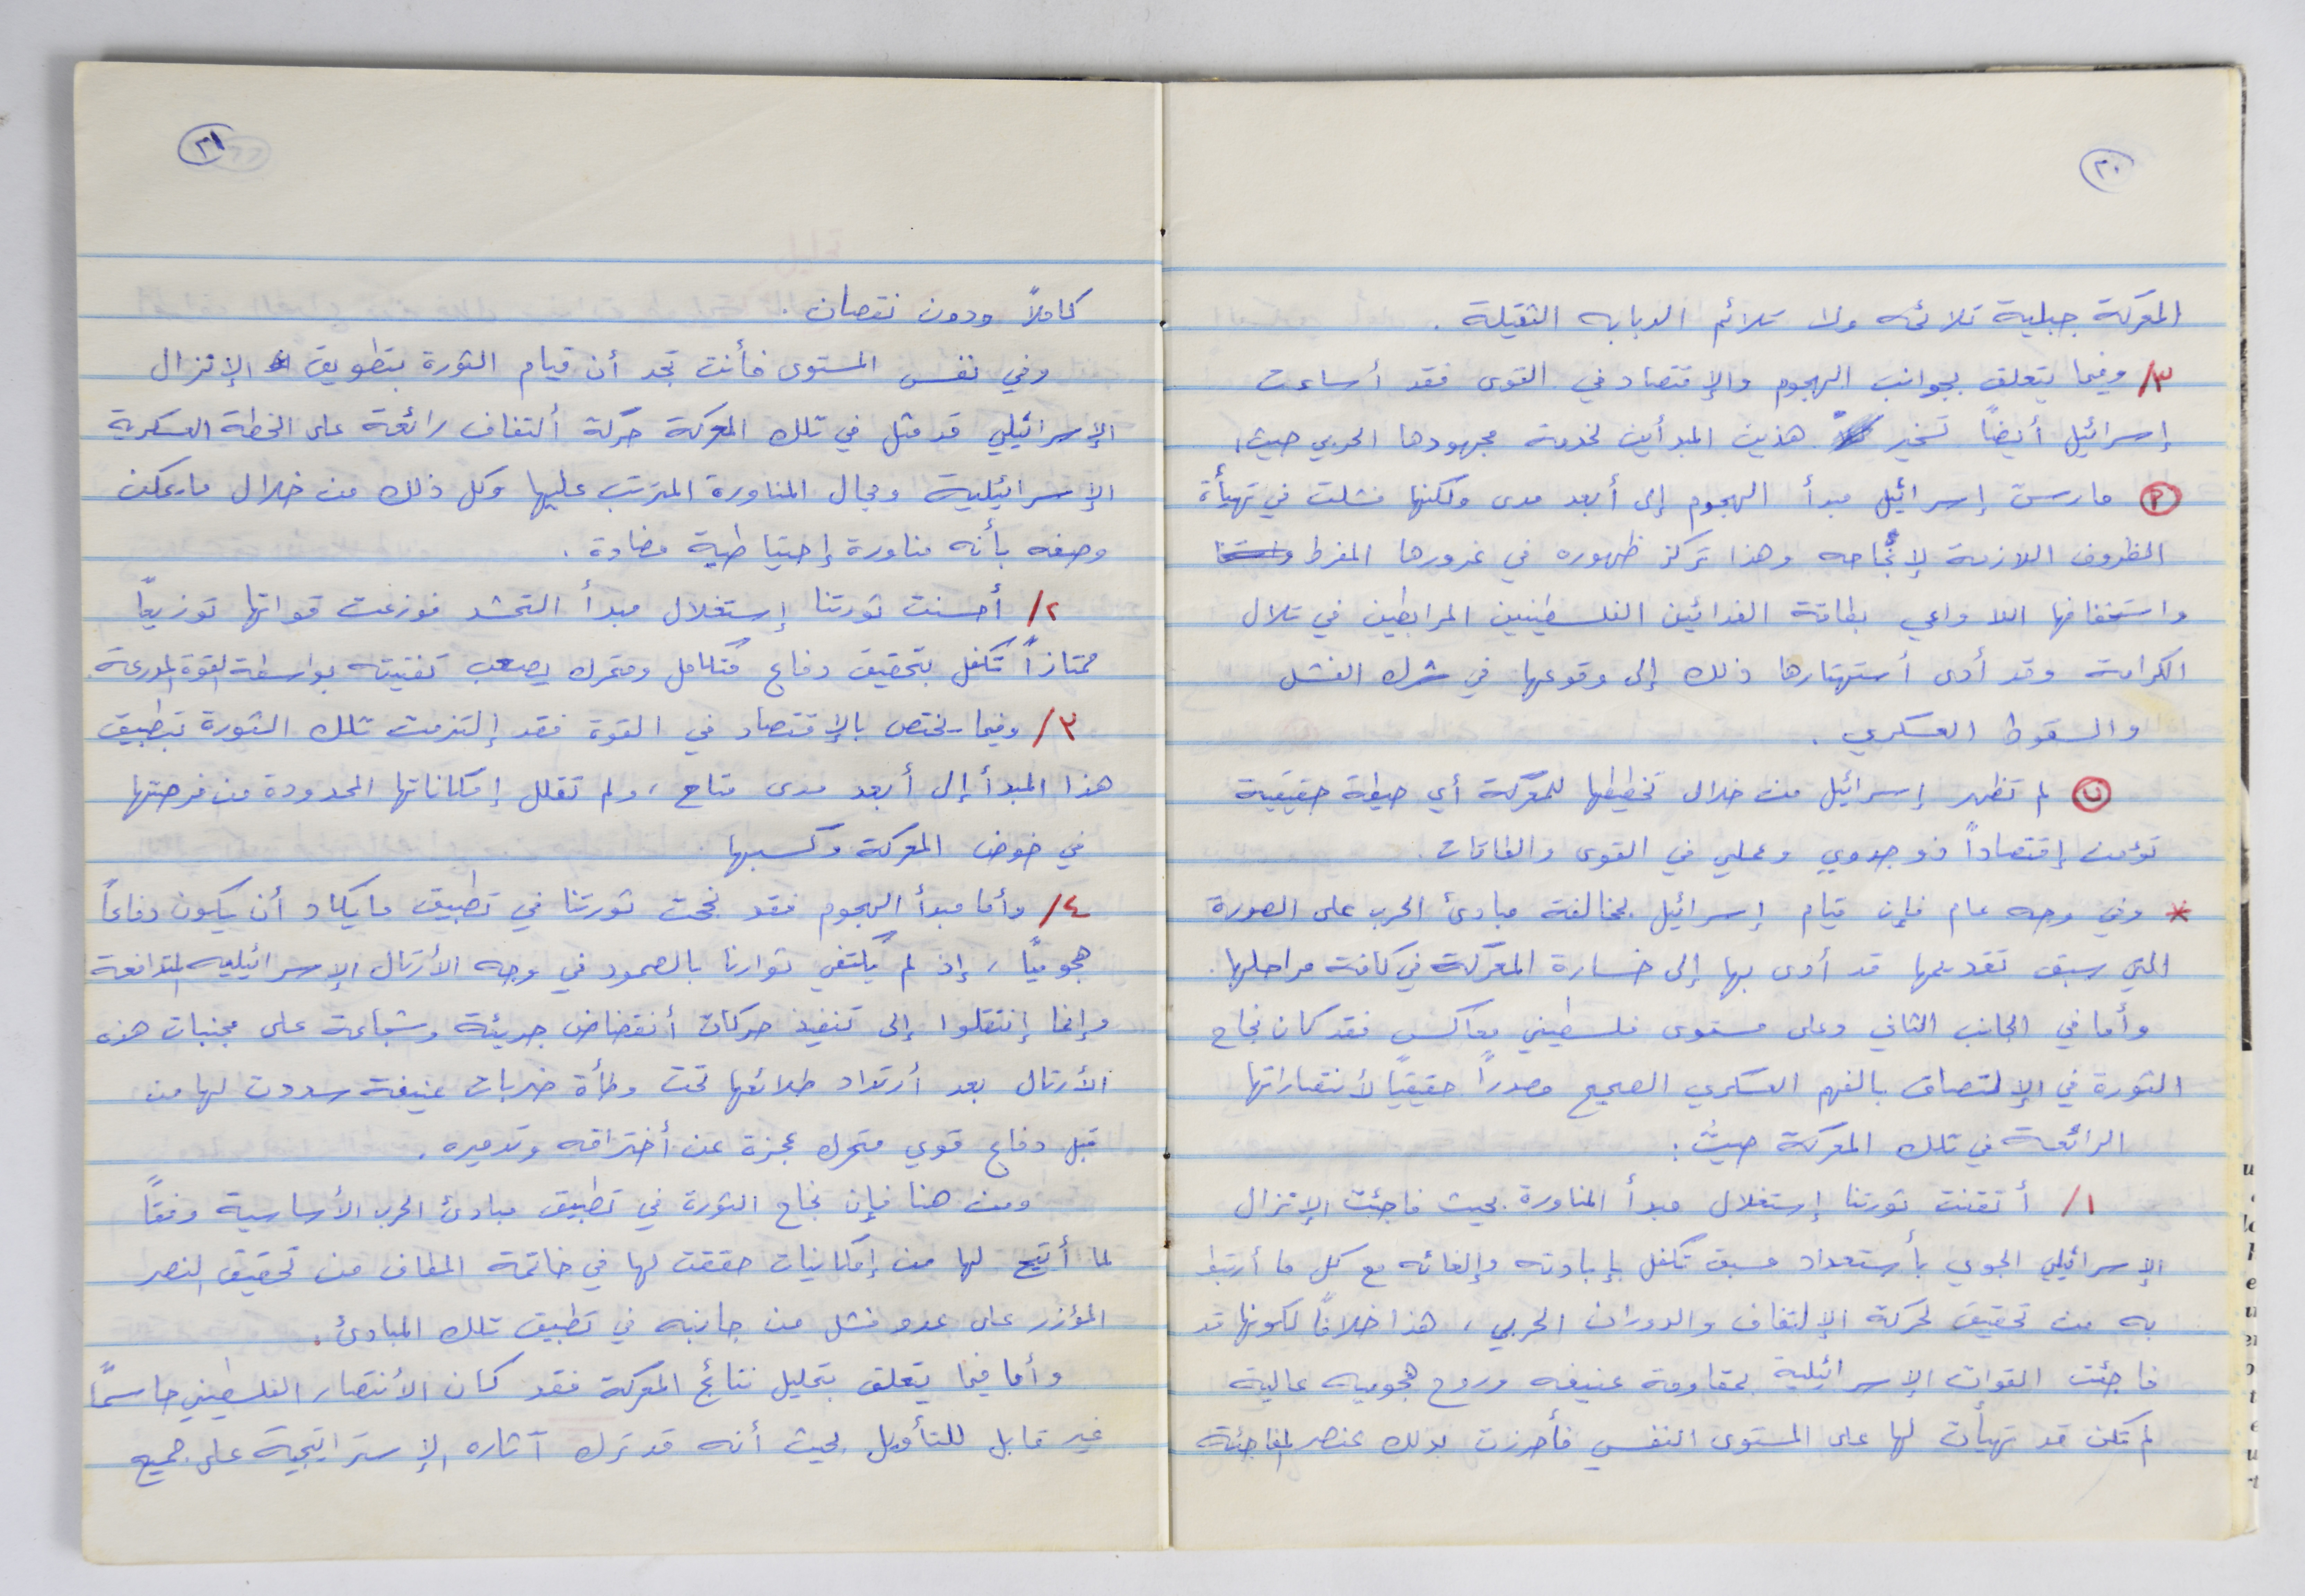 ٣٠
المعركة جبلية تلائمه ولا تلائم الدبابه الثقيلة .
٣/ وفيما يتعلق بجوانب الهجوم والإقتصاد في القوى فقد أساءت
إسرائيل أيضاً تسخير هذين المبدأين لخدمة مجهودها الحربي حيث :
(أ) مارست إسرائيل مبدأ الهجوم إلى أبعد مدى ولكنها فشلت في تهيأة
الظروف اللازمة لإنجاحه وهذا تركز ظهوره في غرورها المفرط
واستخفافها اللا واعي بطاقة الفدائين الفلسطينين المرابطين في تلال
الكرامة وقد أدى أستهتارها ذلك إلى وقوعها في شرك الفشل
والسقوط العسكري .
(ب) لم تظهر إسرائيل من خلال تخطيطها للمعركة أي حيطة حقيقية
تؤمن إقتصاداً ذو جدوى وعملي في القوى والطاقات .
* وفي وجه عام فإن قيام إسرائيل بمخالفة مبادئ الحرب على الصورة
التي سبق تقديمها قد أدى بها إلى خسارة المعركة في كافة مراحلها .
وأما في الجانب الثاني وعلى مستوى فلسطيني معاكس فقد كان نجاح
الثورة في الإلتصاق بالفهم العسكري الصحيح مصدراً حقيقياً لأنتصاراتها
الرائعة في تلك المعركة حيث :
١/ أتقنت ثورتنا إستغلال مبدأ المناورة بحيث فاجئت الإنزال
الإسرائيلي الجوي بأستعداد مسبق تكفل بإبادته وإلغائه مع كل ما أرتبط
به من تحقيق لحركة الإلتفاف والدوران الحربي ، هذا خلافاً لكونها قد
فاجئت القوات الإسرائيلية بمقاومة عنيفه وروح هجوميه عالية
لم تكن قد تهيأت لها على المستوى النفسي فأحرزت بذلك عنصر المفاجئة
٣١
كاملاً ودون نقصان .
وفي نفس المستوى فأنت تجد أن قيام الثورة بتطويق الإنزال
الإسرائيلي قد مثل في تلك المعركة حركة ألتفاف رائعة على الخطة العسكرية
الإسرائيلية ومجال المناورة المترتب عليها وكل ذلك من خلال ما يمكن
وصفه بأنه مناورة إحتياطية مضادة .
٢/ أحسنت ثورتنا إستغلال مبدأ التحشد فوزعت قواتها توزيعاً
ممتازاً تكفل بتحقيق دفاع متكامل ومتحرك يصعب تفتيته بواسطة القوة المدرعة .
٣/ وفيما يختص بالإقتصاد في القوة فقد إلتزمت تلك الثورة بتطبيق
هذا المبدأ إلى أبعد مدى متاح ، ولم تقلل إمكاناتها المحدودة من فرصتها
في خوض المعركة وكسبها .
٤/ وأما مبدأ الهجوم فقد نجحت ثورتنا في تطبيق ما يكاد أن يكون دفاعاً
هجومياً ، إذ لم يكتفي ثوارنا بالصمود في وجه الأرتال الإسرائيليه المتدافعة
وإنما إنتقلوا إلى تنفيذ حركات أنقضاض جريئة وشجاعة على مجنبات هذه
الأرتال بعد أرتداد طلائعها تحت وطأة ضربات عنيفة سددت لها من
قبل دفاع قوي متحرك عجزة عن أختراقه وتدميره .
ومن هنا فإن نجاح الثورة في تطبيق مبادئ الحرب الأساسية وفقاً
لما أتيح لها من إمكانيات حققت لها في خاتمة المطاف من تحقيق النصر
المؤزر على عدو فشل من جانبه في تطبيق تلك المبادئ .
وأما فيما يتعلق بتحليل نتائج المعركة فقد كان الأنتصار الفلسطيني حاسماً
غير قابل للتأويل بحيث أنه قد ترك آثاره الإستراتيجية على جميع